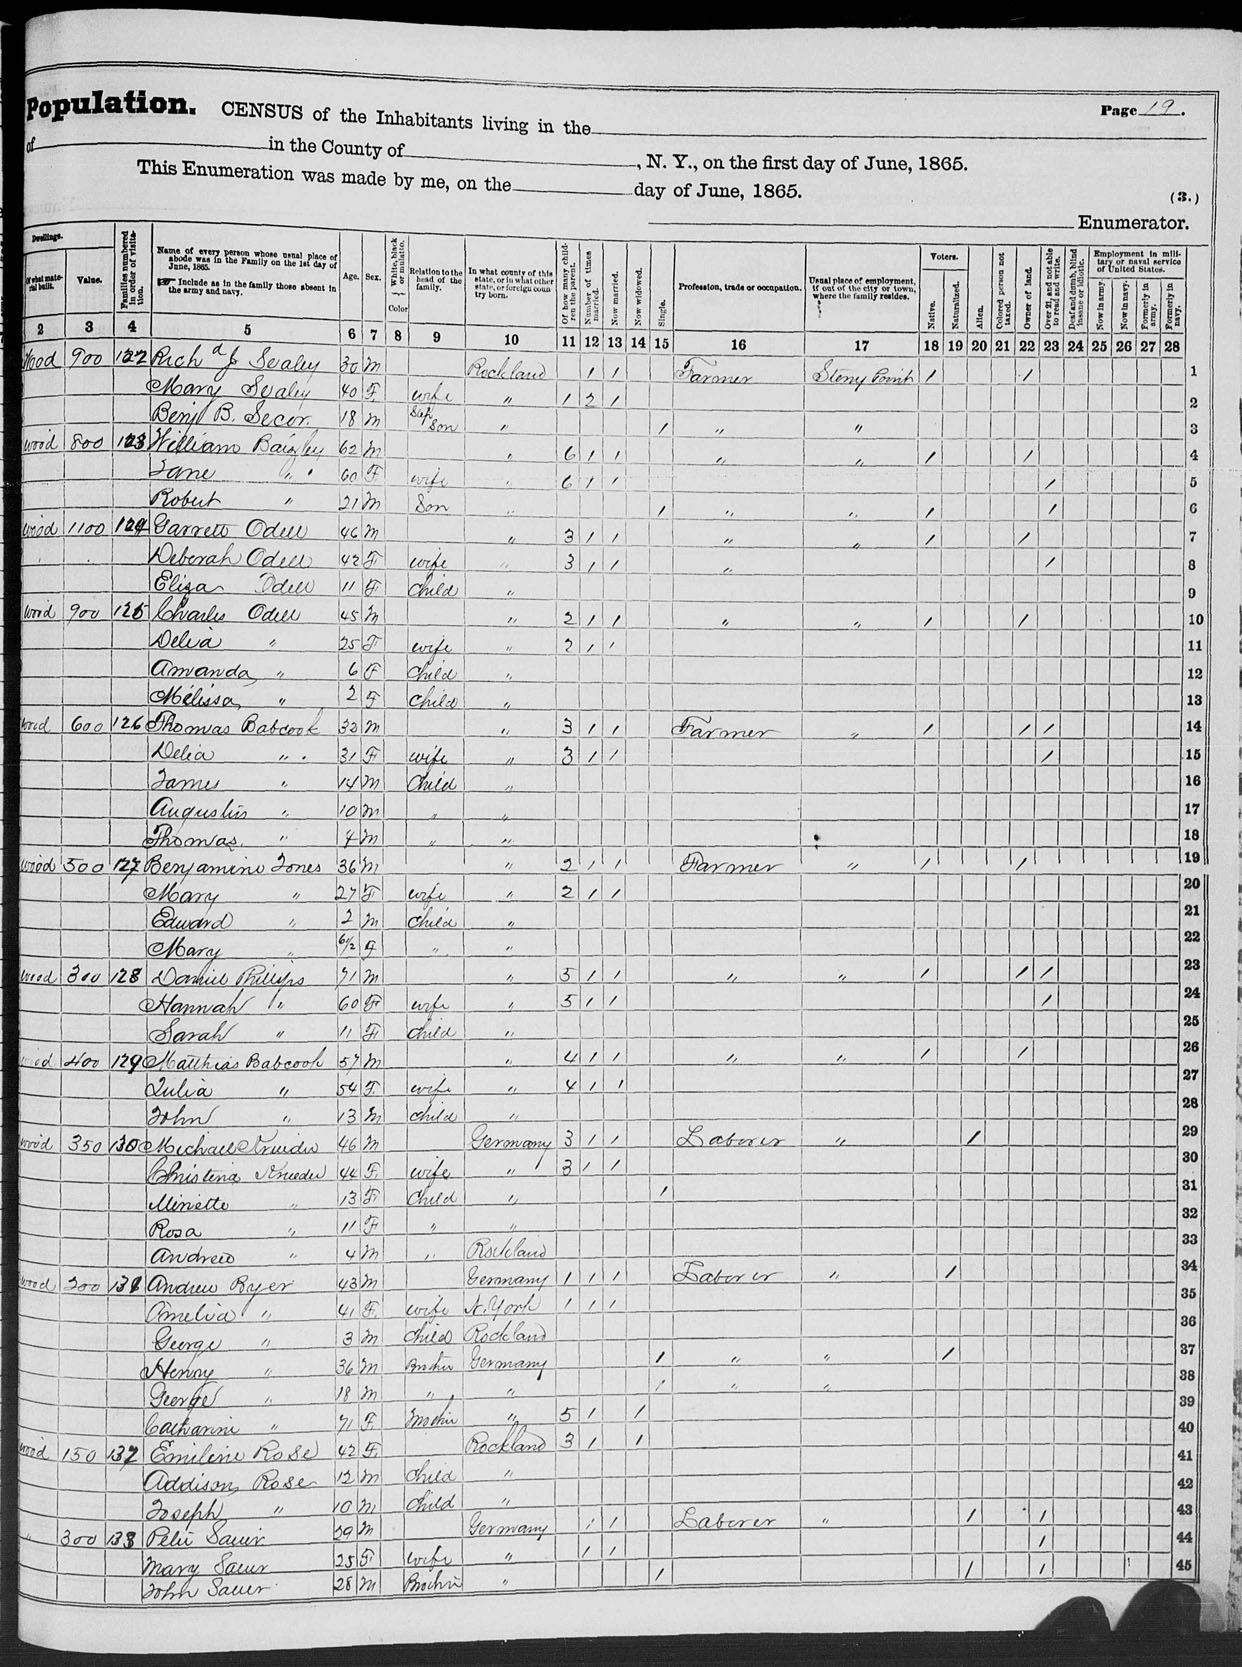 Population. CENSUS of the Inhabitants living in the Page 19.
of in the County of , N. Y., on the first day of June, 1865.
This Enumeration was made by me, on the day of June, 1865.
(3.)
Enumerator.
Dwellings. Families numbered in order of visitation. Name of every person whose usual place of abode was in the Family on the 1st day of June, 1865. Include as in the family those absent in the army and navy. Age. Sex. White, black or mulatto. Color Relation to the head of the family. In what county of this state, or in what other state, or foreign country born. Of how many children the parent. Number of times married. Now married. Now widowed. Single. Profession, trade or occupation. Usual place of employment, if out of the city or town, where the family resides. Voters. Native. Naturalized. Alien. Colored person not taxed. Owner of land. Over 21, and not able to read and write. Deaf and dumb, blind insane or idiotic. Employment in military or naval service of United States. Now in army. Now in navy. Formerly in army. Formerly in navy.
Of what material built. Value.
2 3 4 5 6 7 8 9 10 11 12 13 14 15 16 17 18 19 20 21 22 23 24 25 26 27 28
Wood 900 122 Rich d J Sealey 30 M Rockland / / Farmer Stony Point / / 1
Mary Sealey 40 F wife " 1 2 / 2
Benj B. Secor 18 M Step Son " / " " 3
Wood 800 123 William Baizley 62 M " 6 / / " " / / 4
Jane " 60 F wife " 6 / / / 5
Robert " 21 M Son " / " " / / 6
Wood 1100 124 Garrett Odell 46 M " 3 / / " " / / 7
Deborah Odell 42 F wife " 3 / / " / 8
Eliza Odell 11 F Child " 9
Wood 900 125 Charles Odell 45 M " 2 / / " " / / 10
Delia " 25 F wife " 2 / / 11
Amanda " 6 F Child " 12
Melissa " 2 F Child " 13
Wood 600 126 Thomas Babcook 32 M " 3 / / Farmer " / / / 14
Delia " 31 F wife " 3 / / / 15
James " 14 M Child " 16
Augustus " 10 M " " 17
Thomas " 4 M " " 18
Wood 500 127 Benjamine Jones 36 M " 2 / / Farmer " / / 19
Mary " 27 F wife " 2 / / 20
Edward " 2 M Child " 21
Mary " 6/12 F " " 22
Wood 300 128 Daniel Phillips 71 M " 5 / / " " / / / 23
Hannah " 60 F wife " 5 / / / 24
Sarah " 11 F Child " 25
Wood 400 129 Matthias Babcook 57 M " 4 / / " " / / 26
Julia " 54 F wife " 4 / / 27
John " 13 M Child " 28
Wood 350 130 Michael Krueder 46 M Germany 3 / / Laborer " / 29
Christena Krueder 44 F wife " 3 / / 30
Minette " 13 F Child " / 31
Rosa " 11 F " " 32
Andrew " 4 M " Rockland 33
Wood 200 131 Andrew Byer 43 M Germany 1 / / Laborer " / 34
Amelia " 41 F wife N. York 1 / / 35
George " 3 M Child Rockland 36
Henry " 36 M Brother Germany / " " / 37
George " 18 M " " / " " 38
Catharine " 71 F Mother " 5 / / 39
Wood 150 132 Emiline Rose 42 F Rockland 3 / / 40
Addison Rose 12 M Child " 41
Joseph " 10 M Child " 42
" 300 133 Peter Sauer 29 M Germany / / Laborer " / / 43
Mary Sauer 25 F wife " / / / 44
John Sauer 28 M Brother " / / / 45